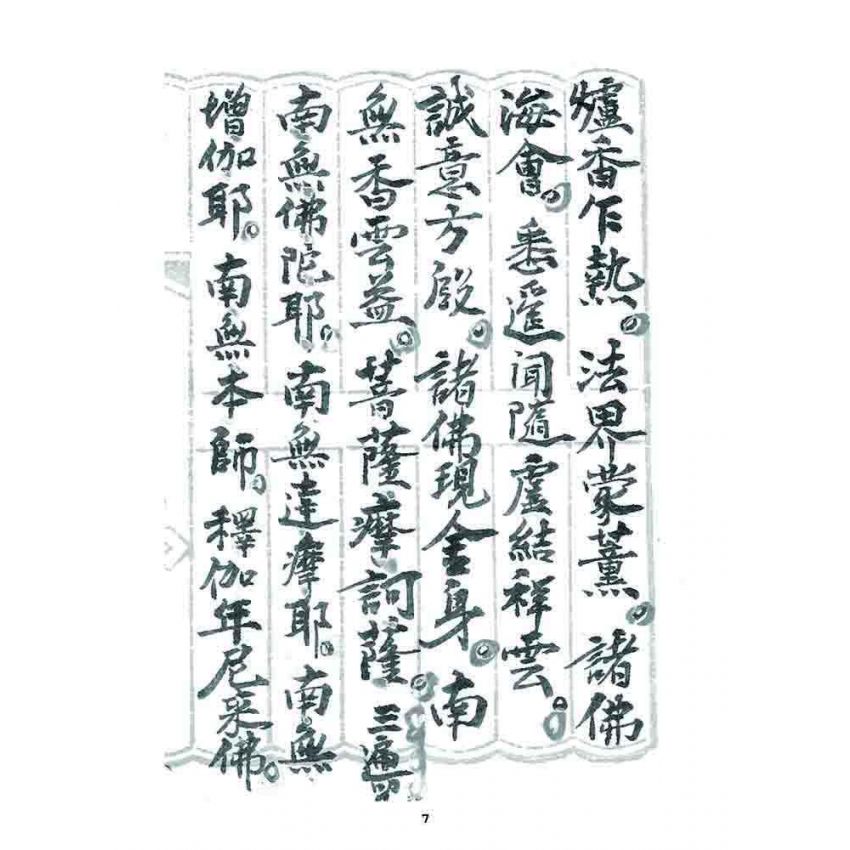 爐香乍熱。法界蒙薰。諸佛
海會。悉遥聞隨虛結祥雲。
誠意方殷。諸佛現金身。南
無香雲益。菩薩摩訶薩。三遍
南無佛陀耶。南無達摩耶。南無
增伽耶。南無本師。釋伽年尼采佛。
7